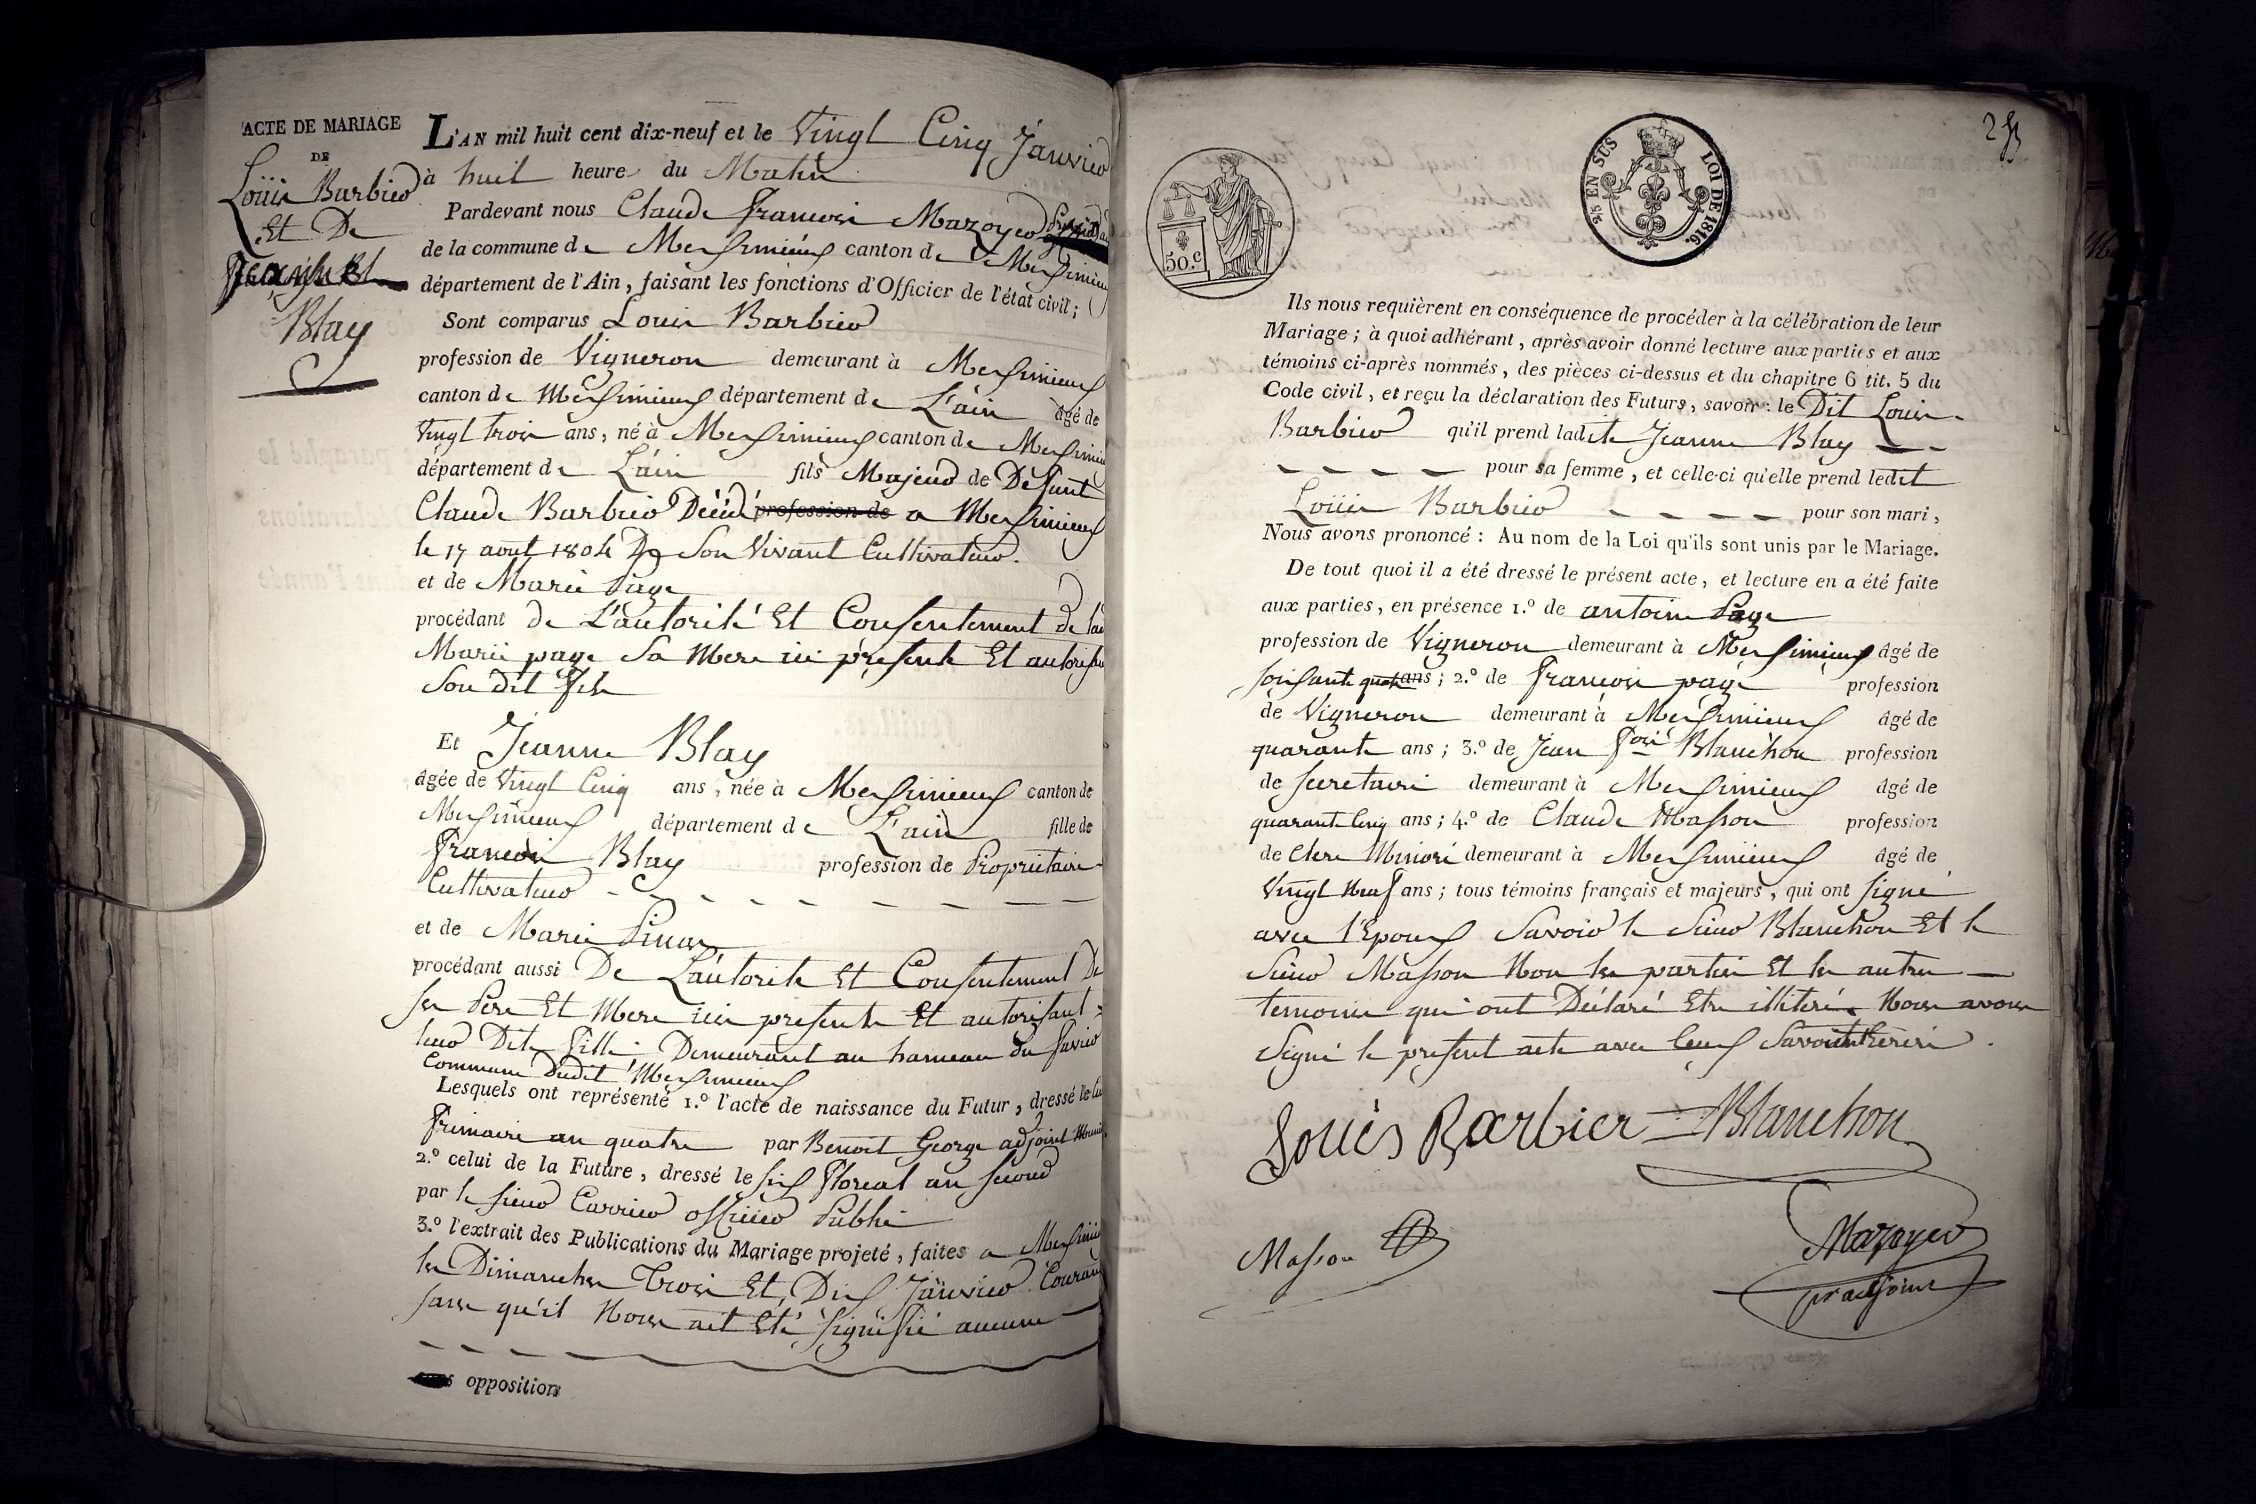 ACTE DE MARIAGE
DE
Loüis Barbier
Et De
Blay
L'AN mil huit cent dix-neuf et le Vingt Cinq Janvier
à huit heure du Matin
Pardevant nous Claude francois Mazoyer
de la commune de Messimieux canton de Messimieux
département de l'Ain, faisant les fonctions d'Officier de l'état civil;
Sont comparus Louis Barbier
profession de Vigneron demeurant à Messimieux
canton de Messimieux département de L'ain âgé de
Vingt trois ans, né à Messimieux canton de Messimieux
département de L'ain fils Majeur de Defunt
Claude Barbier Décédé profession de a Messimieux
le 17 août 1804 De Son Vivant Cultivateur.
et de Marie Page
procédant de L'autorité Et Consentement de lad
Marie page Sa Mere ici présente Et autorisant
Son dit fils
Et Jeanne Blay
âgée de Vingt Cinq ans, née à Messimieux canton de
Messimieux département de L'ain fille de
francois Blay profession de Propriétaire
Cultivateur
et de Marie
procédant aussi De L'autorité Et Consentement De
ses Pere Et Mere ici presente Et autorisant
leur Dite fille. Demeurant au hameau du
Commune Dudit Messimieux
Lesquels ont représenté 1.º l'acte de naissance du Futur, dressé le
frimaire an quatre par Benoit George adjoint
2.º celui de la Future, dressé le six floreal an second
par le sieur Carrier officier Public
3.º l'extrait des Publications du Mariage projeté, faites a Messimieux
les Dimanches Trois Et Dix Janvier Courant
sans qu'il Nous ait Eté signifié aucune
opposition
50.c
25 EN SUS LOI DE 1816.
Ils nous requièrent en conséquence de procéder à la célébration de leur
Mariage; à quoi adhérant, après avoir donné lecture aux parties et aux
témoins ci-après nommés, des pièces ci-dessus et du chapitre 6 tit. 5 du
Code civil, et reçu la déclaration des Futurs, savoir: le Dit Louis
Barbier qu'il prend ladite Jeanne Blay
pour sa femme, et celle-ci qu'elle prend ledit
Loüis Barbier pour son mari,
Nous avons prononcé: Au nom de la Loi qu'ils sont unis par le Mariage.
De tout quoi il a été dressé le présent acte, et lecture en a été faite
aux parties, en présence 1.º de antoine Page
profession de Vigneron demeurant à Messimieux âgé de
soixante quatre ans; 2.º de francois page profession
de Vigneron demeurant à Messimieux âgé de
quarante ans; 3.º de Jean fois Blanchon profession
de secretaire demeurant à Messimieux âgé de
quarante Cinq ans; 4.º de Claude Masson profession
de Clerc Minoré demeurant à Messimieux âgé de
Vingt Neuf ans; tous témoins français et majeurs, qui ont signé
avec l'Epoux Savoir le Sieur Blanchon Et le
Sieur Masson Non les parties Et les autres
temoins qui ont Déclaré Etre illiterés Nous avons
Signé le présent acte avec Ceux
Louis Barbier Blanchon
Masson
Mazoyer
adjoint